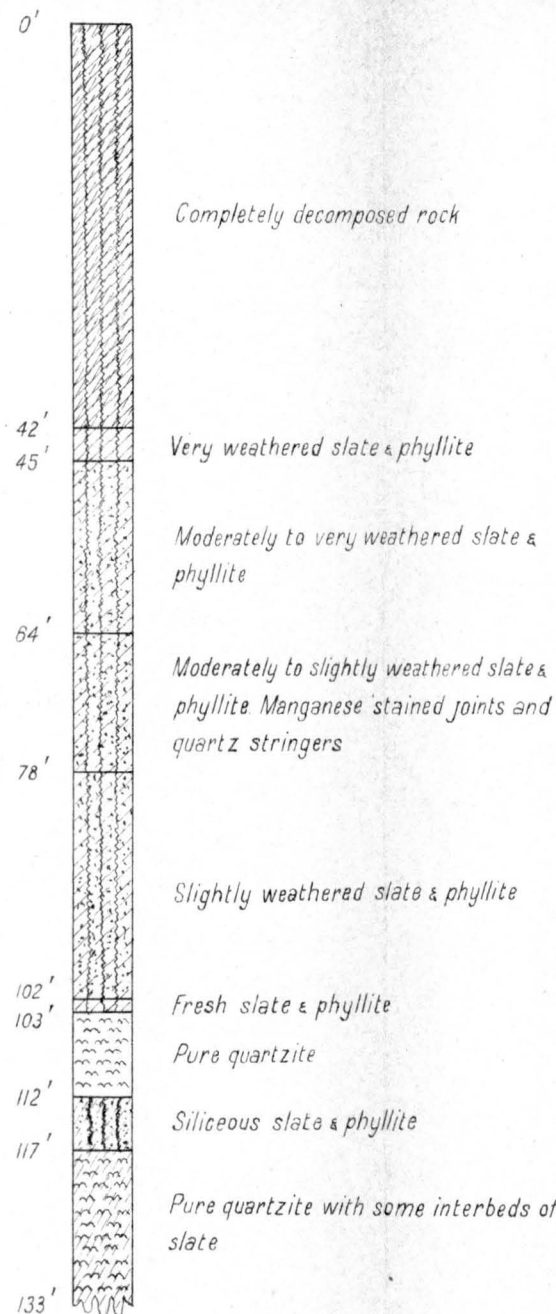 0'
Completely decomposed rock
42'
Very weathered slate & phyllite
45'
Moderately to very weathered slate &
phyllite
64'
Moderately to slightly weathered slate &
phyllite. Manganese stained joints and
quartz stringers
78'
Slightly weathered slate & phyllite
102'
Fresh slate & phyllite
103'
Pure quartzite
112'
Siliceous slate & phyllite
117'
Pure quartzite with some interbeds of
slate
133'